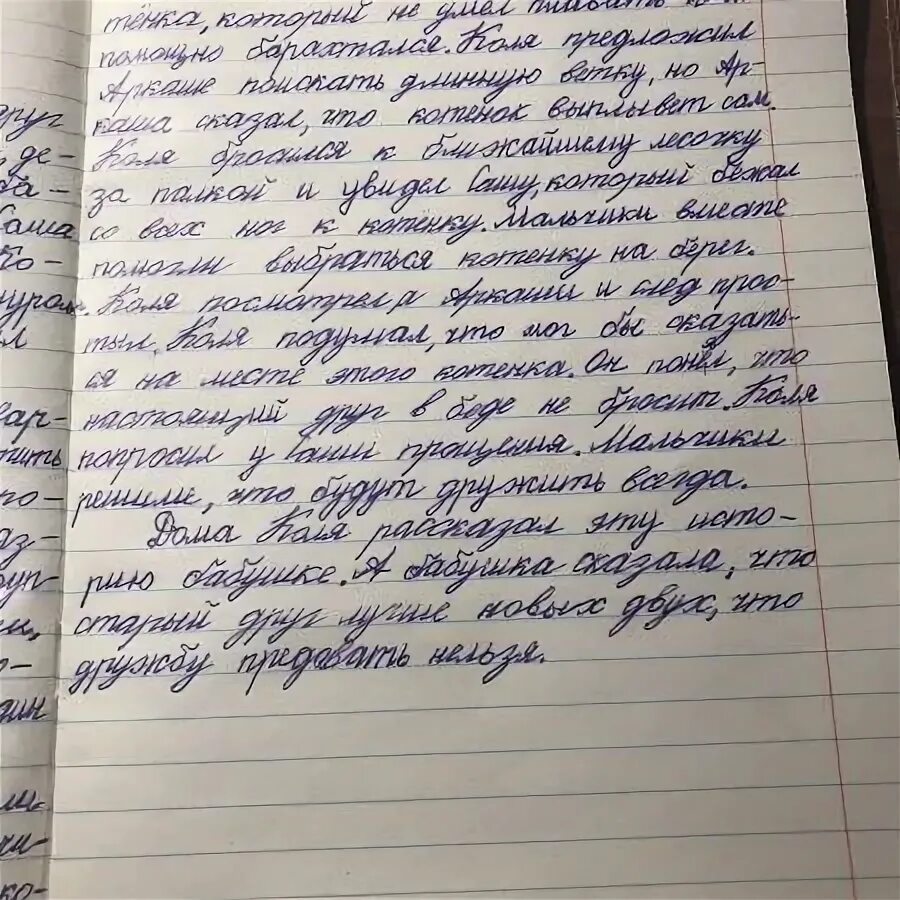 тёнка, который не умел плавать
помощно барахтался. Коля предложил
Аркаше поискать длинную ветку, но Ар-
каша сказал, что котенок выплывет сам.
Коля бросился к ближайшему лесочку
за палкой и увидел Сашу, который бежал
со всех ног к котенку. Мальчики вместе
помогли выбраться котенку на берег.
Коля посмотрел, а Аркаши и след прос-
тыл. Коля подумал, что мог бы оказать-
ся на месте этого котенка. Он понял, что
настоящий друг в беде не бросит. Коля
попросил у Саши прощения. Мальчики
решили, что будут дружить всегда.
Дома Коля рассказал эту исто-
рию бабушке. А бабушка сказала, что
старый друг лучше новых двух, что
дружбу предавать нельзя.
друг
де-
ба-
Саша
Ко-
л
вар-
тить
по-
аз-
руп-
ко-